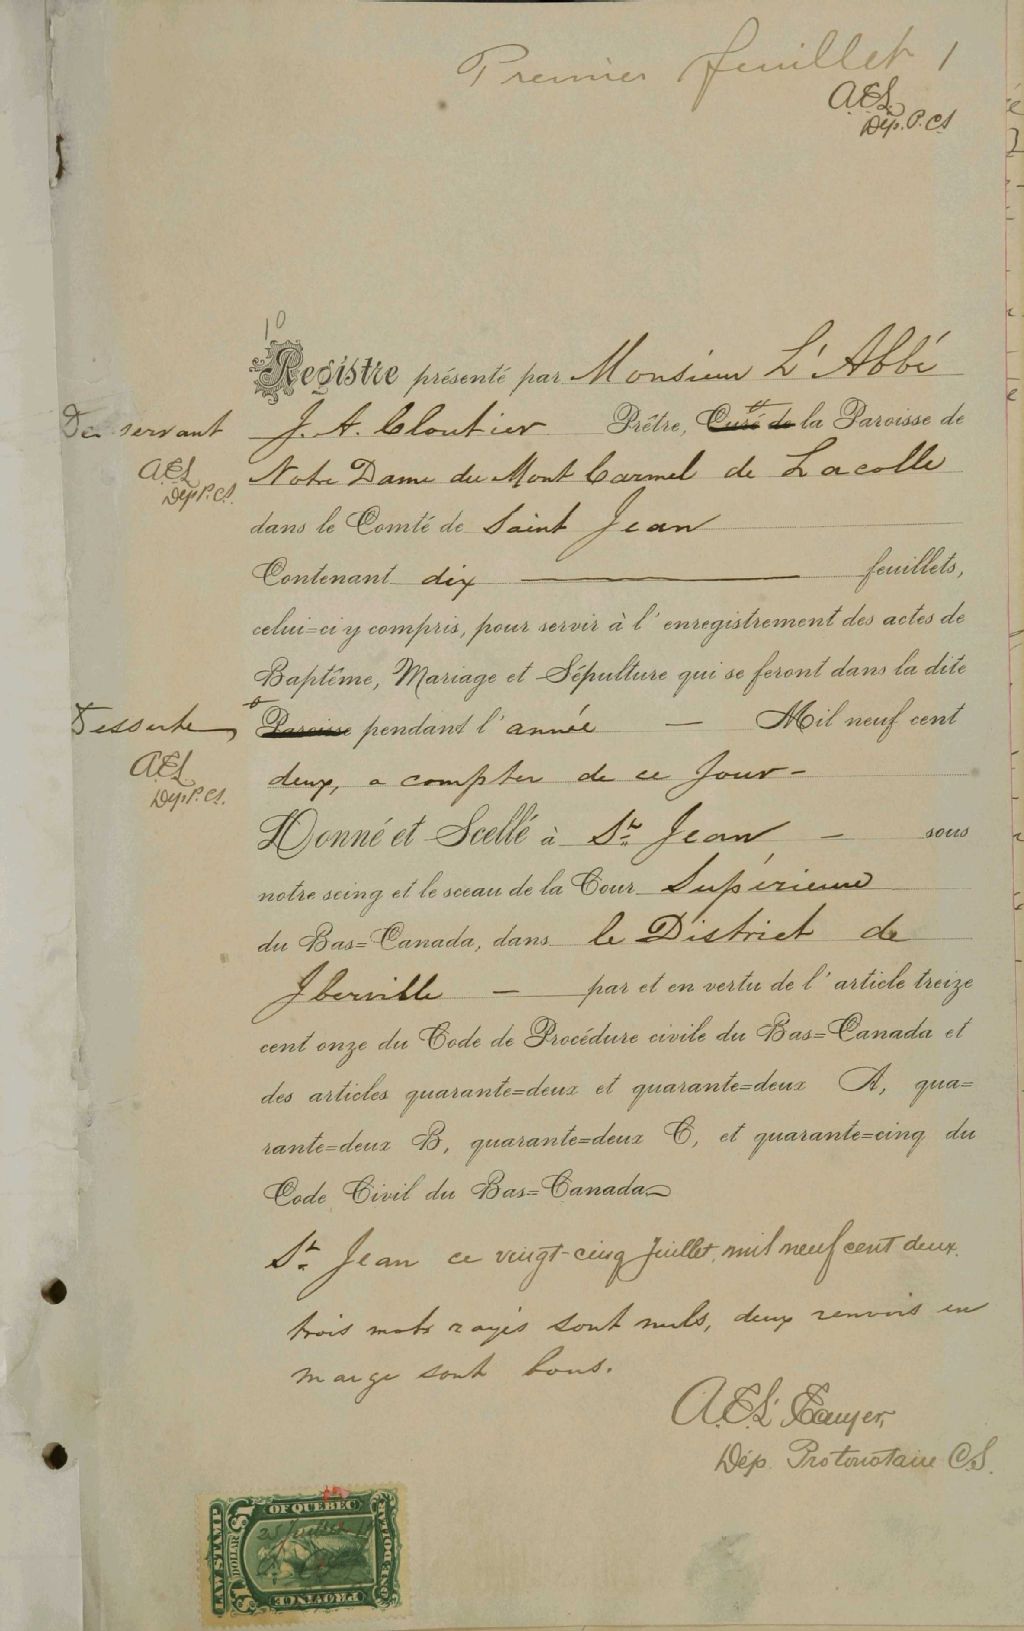 Premier feuillet 1
A.E.L.
Dép. P. C.S
1º
Registre présenté par Monsieur L'Abbé
Desservant J. A. Cloutier Prêtre, Curé de la Paroisse de
A.E.L. Notre Dame du Mont Carmel de Lacolle
Dép P. C.S.
dans le Comté de Saint Jean
Contenant dix feuillets,
celui=ci y compris, pour servir à l'enregistrement des actes de
Baptême, Mariage et Sépulture qui se feront dans la dite
Desserte, Paroisse pendant l'année — Mil neuf cent
A.E.L.
Dép. P. C.S. deux, a compter de ce Jour -
Donné et Scellé à St. Jean — sous
notre seing et le sceau de la Cour Supérieure
du Bas=Canada, dans le District de
Iberville — par et en vertu de l'article treize
cent onze du Code de Procédure civile du Bas=Canada et
des articles quarante=deux et quarante=deux A, qua=
rante=deux B, quarante=deux C, et quarante=cinq du
Code Civil du Bas=Canada
St. Jean ce vingt-cinq Juillet, mil neuf cent deux.
trois mots rayés sont nuls, deux renvois en
marge sont bons.
A.E.L.
Dép. Protonotaire C.S.
LAW STAMP
$1 OF QUEBEC
DOLLAR
ONE DOLLAR
$1 PROVINCE
25 Juillet